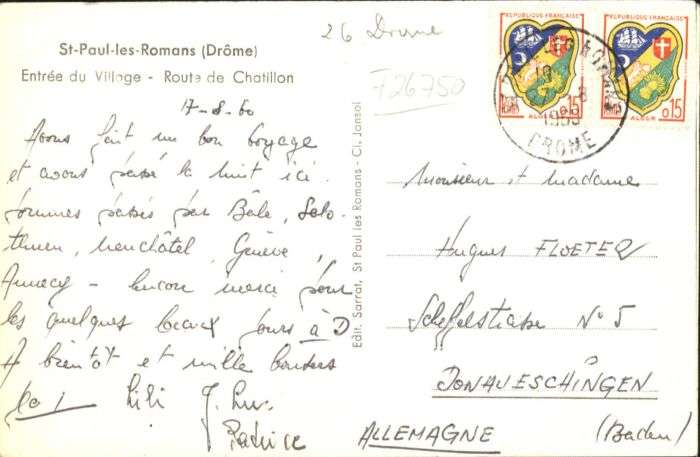 26 Drome
REPUBLIQUE FRANÇAISE
REPUBLIQUE FRANÇAISE
0,15
0,15
ALGER
ALGER
DROME
St-Paul-les-Romans (Drôme)
Entrée du Village - Route de Chatillon
F26750
17-8-60
Avons fait un bon voyage
et avons passé la nuit ici.
sommes passés par Bâle, Solo-
thurn, Neuchâtel, Genève,
Annecy - Encore merci pour
les quelques beaux jours à D
A bientôt et mille bonsoirs
Lili J. Luc
Patrice
Edit. Sarrat, St Paul les Romans - Cl. Jansol
Monsieur et madame
Hugues FLOETER
Scheffelstrasse N° 5
DONAUESCHINGEN
ALLEMAGNE (Baden)